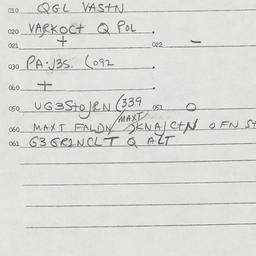 010 QGL VASTN
020 VARKOCT Q POL .
021 + 022 -
030 PA·J3S. (092 .
040 + .
050 UG3StOJRN (339 051 O
MAXT
060 MAXT FALDN JKNAJCTN OFN St
061 G3GR2NCLT Q ALT